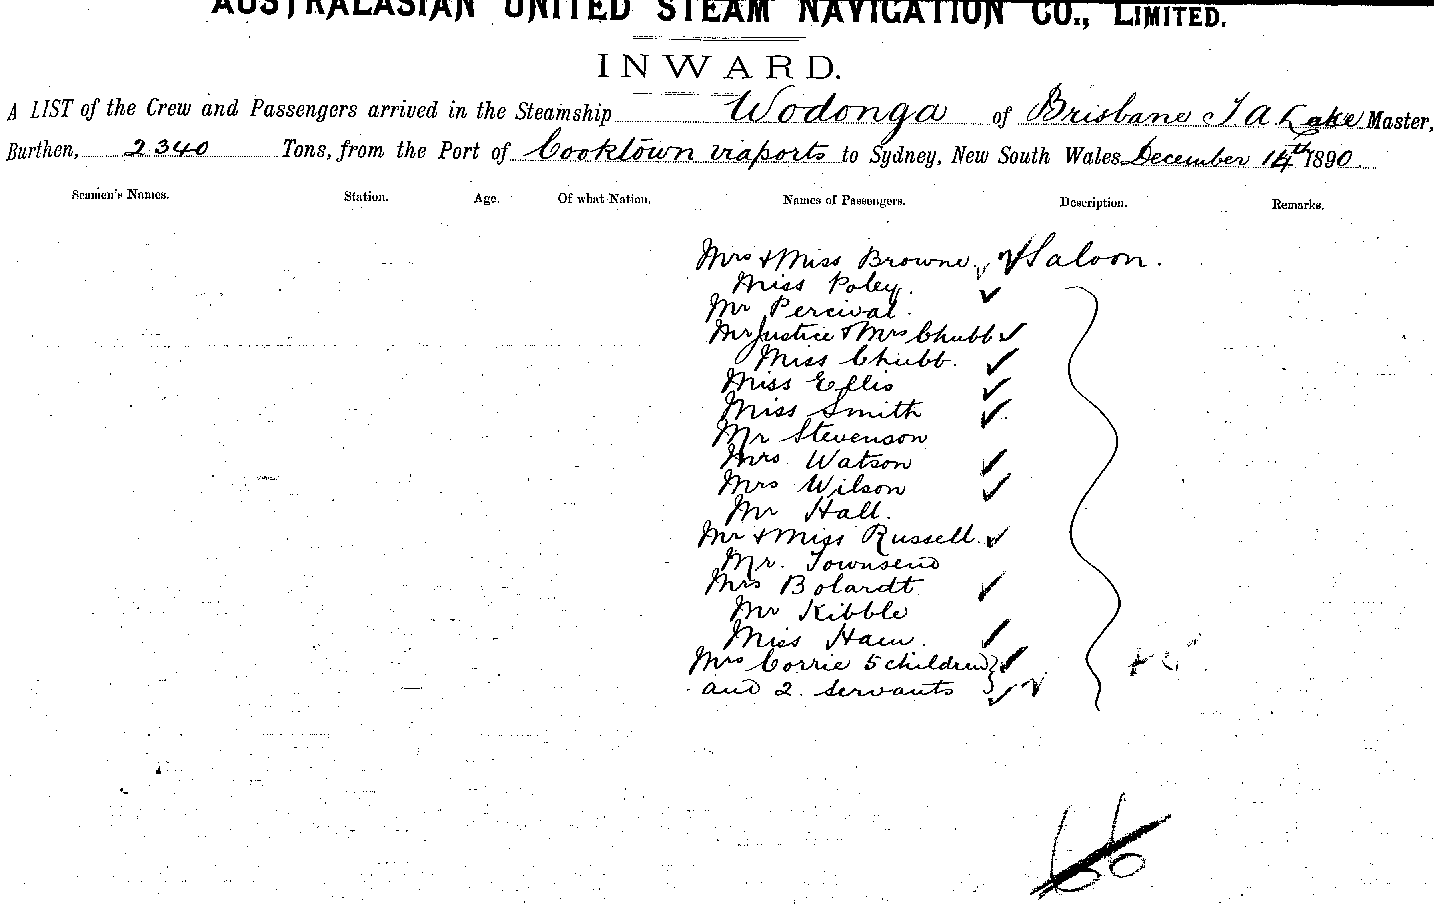 AUSTRALASIAN UNITED STEAM NAVIGATION CO., LIMITED.
INWARD.
A LIST of the Crew and Passengers arrived in the Steamship Wodonga of Brisbane J A Lake Master,
Burthen, 2340 Tons, from the Port of Cooktown via ports to Sydney, New South Wales December 14th 1890
Seamen's Names. Station. Age. Of what Nation. Names of Passengers. Description. Remarks.
Mrs & Miss Browne. Saloon.
Miss Poley.
Mr Percival.
Mr Justice & Mrs Chubb
Miss Chubb.
Miss Ellis
Miss Smith
Mr Stevenson
Mrs Watson
Mrs Wilson
Mr Hall.
Mr & Miss Russell.
Mr. Townsend
Mrs Bolardt
Mr Kibble
Miss Ham.
Mrs Corrie 5 children
and 2. servants
66